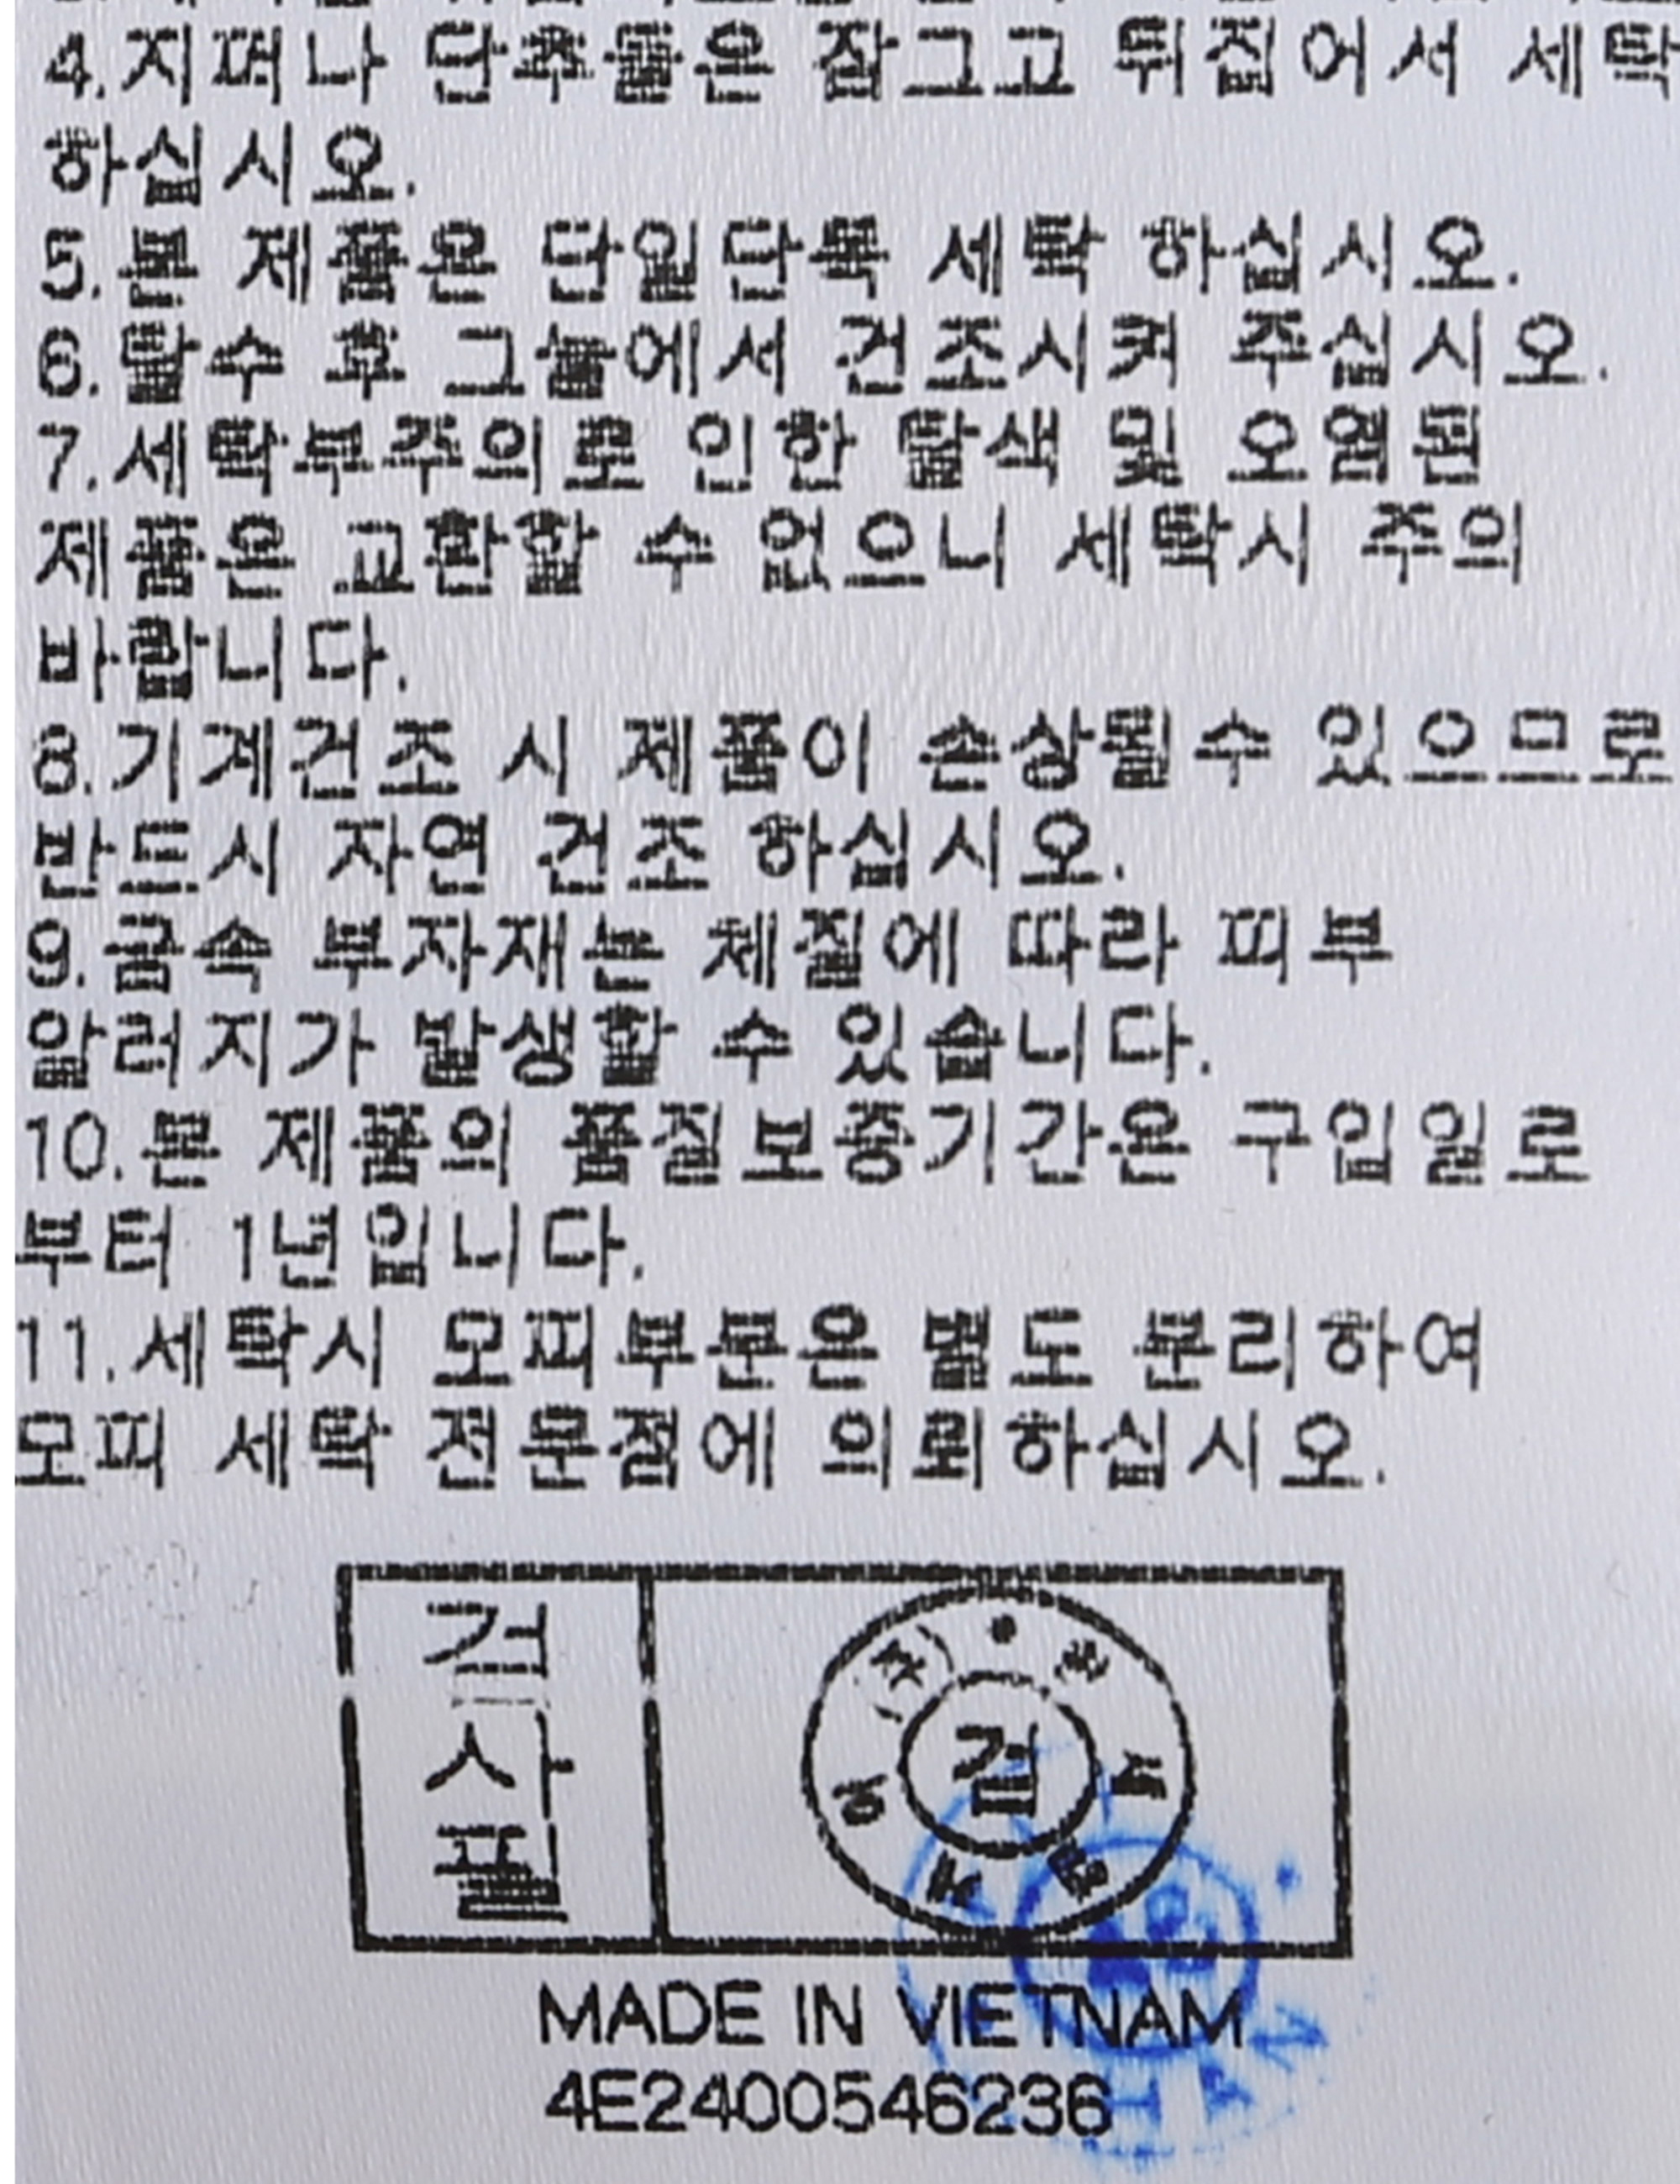 4.지퍼나 단추들은 잠그고 뒤집어서 세탁
하십시오.
5.본 제품은 단일단독 세탁 하십시오.
6.탈수 후 그늘에서 건조시켜 주십시오.
7.세탁부주의로 인한 탈색 및 오염된
제품은 교환할 수 없으니 세탁시 주의
바랍니다.
8.기계건조 시 제품이 손상될수 있으므로
반드시 자연 건조 하십시오.
9.금속 부자재는 체질에 따라 피부
알러지가 발생할 수 있습니다.
10.본 제품의 품질보증기간은 구입일로
부터 1년입니다.
11.세탁시 모피부분은 별도 분리하여
모피 세탁 전문점에 의뢰하십시오.
검사필
검
MADE IN VIETNAM
4E2400546236